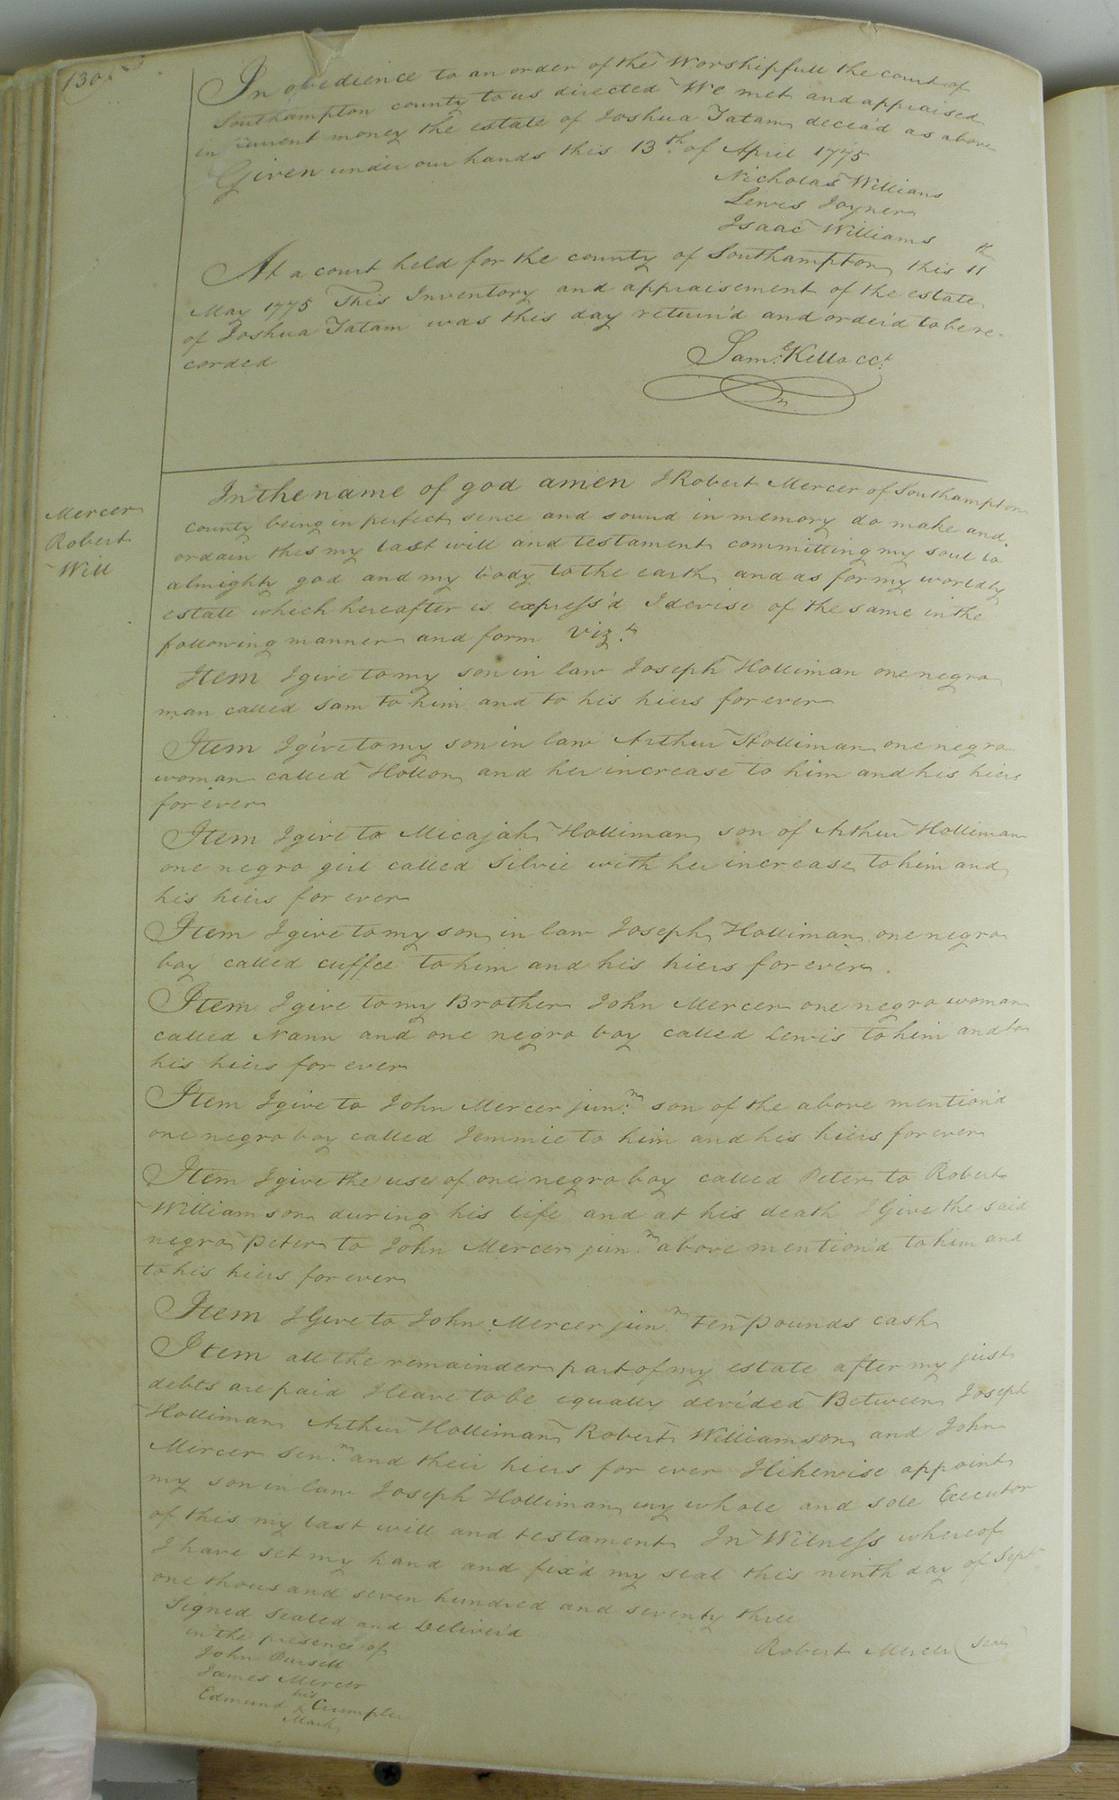 130
In obedience to an order of the Worshipfull the court of
Southampton county to us directed We met and appraised
in current money the estate of Joshua Tatam decea'd as above
Given under our hands this 13th. of April 1775
Nicholas Williams
Lewis Joyner
Isaac Williams
At a court held for the county of Southampton this 11th
May 1775 This Inventory and appraisement of the estate
of Joshua Tatam was this day return'd and order'd to be re-
corded
Saml. Kello CCt.
Mercer
Robert
Will
In the name of god amen I Robert Mercer of Southampton
county being in perfect sence and sound in memory do make and
ordain this my last will and testament committing my soul to
almighty god and my body to the earth and as for my worldly
estate which hereafter is express'd I devise of the same in the
following manner and form Vizt.
Item I give to my son in law Joseph Holliman one negro
man called Sam to him and to his hiers for ever
Item I give to my son in law Arthur Holliman one negro
woman called Hollon and her increase to him and his hiers
for ever
Item I give to Micajah Holliman son of Arthur Holliman
one negro girl called Silvie with her increase to him and
his hiers for ever
Item I give to my son in law Joseph Holliman one negro
boy called cuffee to him and his hiers for ever.
Item I give to my Brother John Mercer one negro woman
called Nann and one negro boy called Lewis to him and to
his hiers for ever
Item I give to John Mercer junr. son of the above mention'd
one negro boy called Jemmie to him and his hiers for ever
Item I give the use of one negro boy called Peter to Robert
Williamson during his life and at his death I Give the said
negro peter to John Mercer junr. above mention'd to him and
to his hiers for ever
Item I Give to John Mercer junr. ten pounds cash
Item all the remainder part of my estate after my just
debts are paid I leave to be equally devided Between Joseph
Holliman Arthur Holliman Robert Williamson and John
Mercer Senr. and their hiers for ever I likewise appoint
my son in law Joseph Holliman my whole and sole Executor
of this my last will and testament In Witness whereof
I have set my hand and fix'd my seal this ninth day of Sept
one thousand seven hundred and seventy three
Signed Sealed and Deliver'd
in the presence of
Robert Mercer (Seal)
John Pursell
James Mercer
his
Edmund X Crumpler
Mark